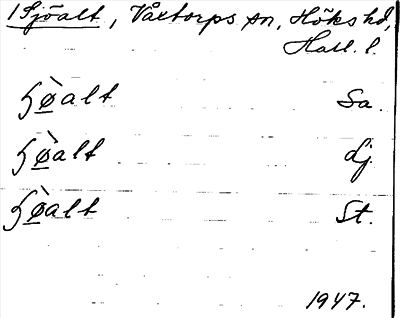 1 Sjöalt, Våxtorps sn, Höks hd,
Hall. l.
ʃø̀alt Sa.
ʃø̀alt Lj.
ʃø̀alt St.
1947.